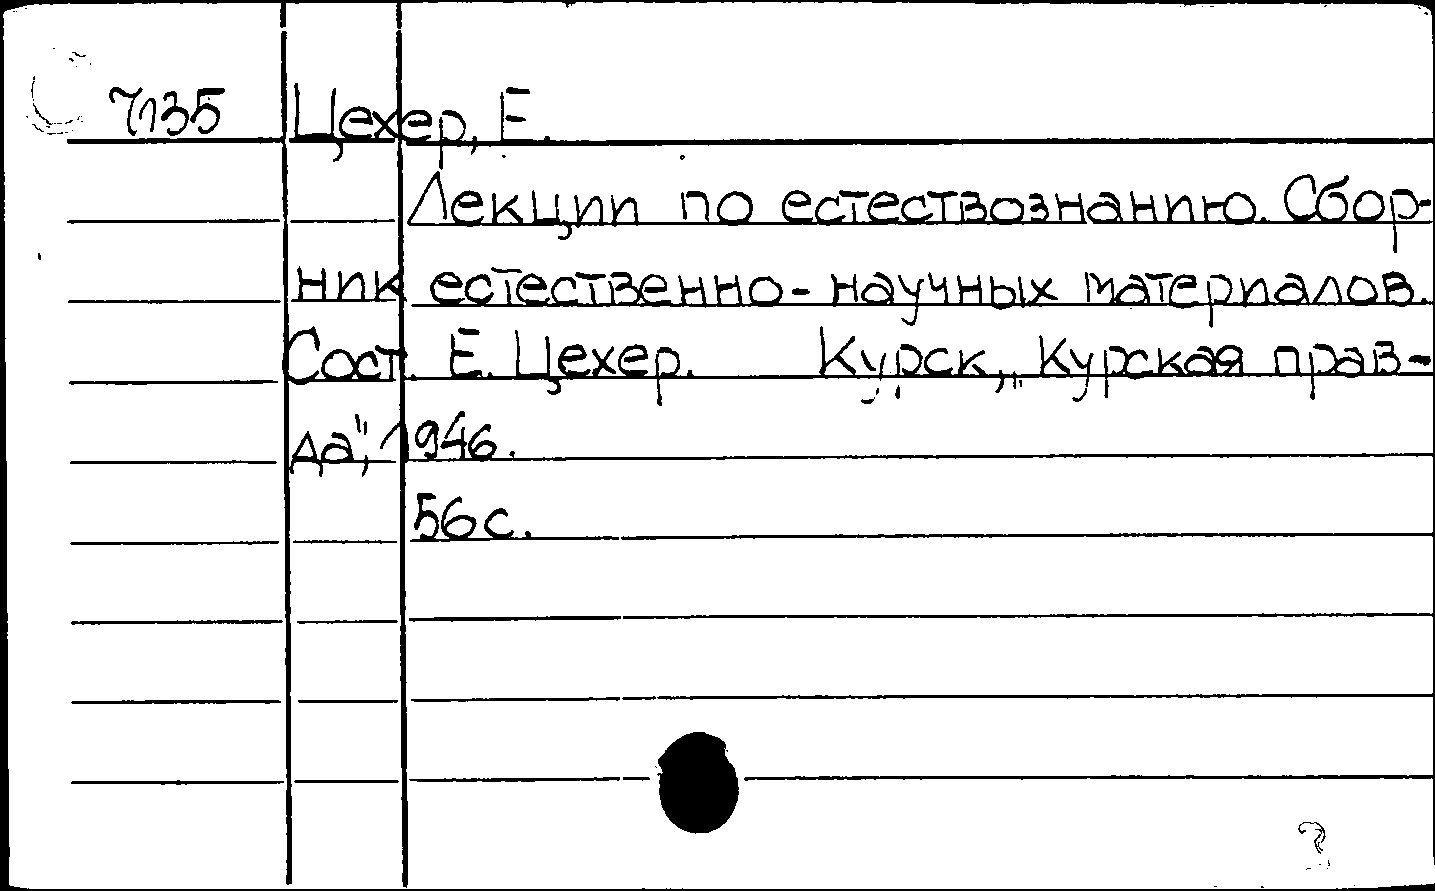 7135 Цехер, Е.
Лекции по естествознанию. Сбор-
ник естественно-научных материалов.
Сост. Е. Цехер. Курск, „Курская прав-
да", 1946.
56 с.
?